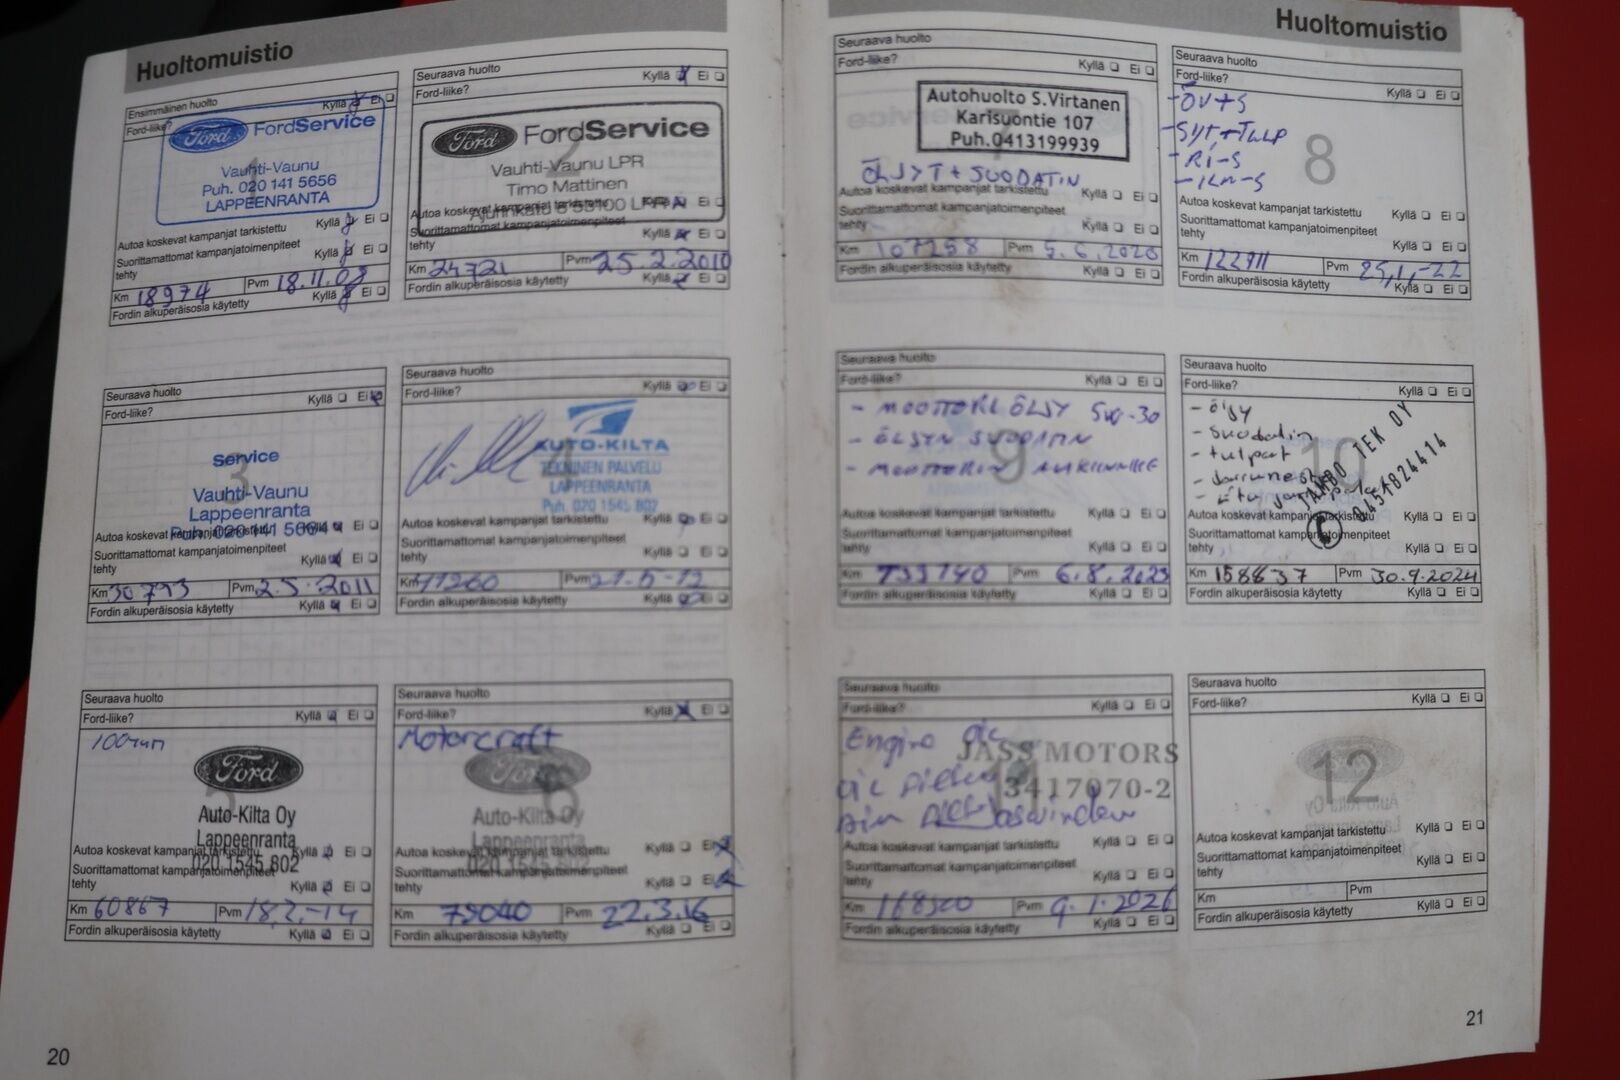 Huoltomuistio
Ensimmäinen huolto
Ford-liike? Kyllä Ei
Ford FordService
Vauhti-Vaunu
Puh. 020 141 5656
LAPPEENRANTA
Autoa koskevat kampanjat tarkistettu Kyllä Ei
Suorittamattomat kampanjatoimenpiteet
tehty Kyllä Ei
Km 18974 Pvm 18.11.08
Fordin alkuperäisosia käytetty Kyllä Ei
Seuraava huolto
Ford-liike? Kyllä Ei
2
Ford FordService
Vauhti-Vaunu LPR
Timo Mattinen
Autoa koskevat kampanjat tarkistettu Ei
Suorittamattomat kampanjatoimenpiteet
tehty Kyllä Ei
Km 24721 Pvm 25.2.2010
Fordin alkuperäisosia käytetty Kyllä Ei
Seuraava huolto
Ford-liike? Kyllä Ei
3
Service
Vauhti-Vaunu
Lappeenranta
Puh. 020 141 5664
Autoa koskevat kampanjat tarkistettu Kyllä Ei
Suorittamattomat kampanjatoimenpiteet
tehty Kyllä Ei
Km 30793 Pvm 2.5.2011
Fordin alkuperäisosia käytetty Kyllä Ei
Seuraava huolto
Ford-liike? Kyllä Ei
4
AUTO-KILTA
TEKNINEN PALVELU
LAPPEENRANTA
Puh. 020 1545 802
Autoa koskevat kampanjat tarkistettu Kyllä Ei
Suorittamattomat kampanjatoimenpiteet
tehty Kyllä Ei
Km 41260 Pvm 21-5-12
Fordin alkuperäisosia käytetty Kyllä Ei
Seuraava huolto
Ford-liike? Kyllä Ei
5
Ford
Auto-Kilta Oy
Lappeenranta
020 1545 802
Autoa koskevat kampanjat tarkistettu Kyllä Ei
Suorittamattomat kampanjatoimenpiteet
tehty Kyllä Ei
Km 60867 Pvm 18.2.-14
Fordin alkuperäisosia käytetty Kyllä Ei
Seuraava huolto
Ford-liike? Kyllä Ei
Motorcraft
6
Ford
Auto-Kilta Oy
Lappeenranta
020 1545 802
Autoa koskevat kampanjat tarkistettu Kyllä Ei
Suorittamattomat kampanjatoimenpiteet
tehty Kyllä Ei
Km 79040 Pvm 22.3.16
Fordin alkuperäisosia käytetty Kyllä Ei
20
Huoltomuistio
Seuraava huolto
Ford-liike? Kyllä Ei
Autohuolto S.Virtanen
Karisuontie 107
Puh.0413199939
ÖLJYT + SUODATIN
Autoa koskevat kampanjat tarkistettu Kyllä Ei
Suorittamattomat kampanjatoimenpiteet
tehty Kyllä Ei
Km 107258 Pvm 5.6.2020
Fordin alkuperäisosia käytetty Kyllä Ei
Seuraava huolto
Ford-liike? Kyllä Ei
- ÖV+S
- RI-S
8
Autoa koskevat kampanjat tarkistettu Kyllä Ei
Suorittamattomat kampanjatoimenpiteet
tehty Kyllä Ei
Km 122911 Pvm 25.1.-22
Fordin alkuperäisosia käytetty Kyllä Ei
Seuraava huolto
Ford-liike? Kyllä Ei
- MOOTTORI ÖLJY 5W-30
- ÖLJYN SUODATIN
9
Autoa koskevat kampanjat tarkistettu Kyllä Ei
Suorittamattomat kampanjatoimenpiteet
tehty Kyllä Ei
Km 133740 Pvm 6.8.2023
Fordin alkuperäisosia käytetty Kyllä Ei
Seuraava huolto
Ford-liike? Kyllä Ei
- öljy
- suodatin
- tulpat
10
JAMBO TEK OY
0451824414
Autoa koskevat kampanjat tarkistettu Kyllä Ei
Suorittamattomat kampanjatoimenpiteet
tehty Kyllä Ei
Km 158837 Pvm 30.9.2024
Fordin alkuperäisosia käytetty Kyllä Ei
Seuraava huolto
Ford-liike? Kyllä Ei
Engine oil
JASS MOTORS
3417070-2
Autoa koskevat kampanjat tarkistettu Kyllä Ei
Suorittamattomat kampanjatoimenpiteet
tehty Kyllä Ei
Km 168500 Pvm 9.1.2026
Fordin alkuperäisosia käytetty Kyllä Ei
Seuraava huolto
Ford-liike? Kyllä Ei
12
Autoa koskevat kampanjat tarkistettu Kyllä Ei
Suorittamattomat kampanjatoimenpiteet
tehty Kyllä Ei
Km Pvm
Fordin alkuperäisosia käytetty Kyllä Ei
21